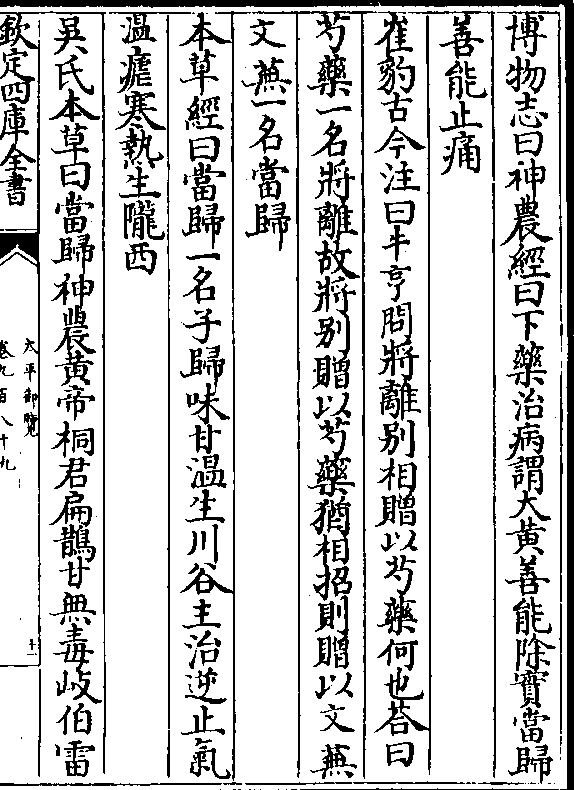 博物志曰神農經曰下藥治病謂大黄善能除實當歸
善能止痛
崔豹古今注曰牛亨問將離别相贈以芍藥何也荅曰
芍藥一名將離故將别贈以芍藥猶相招則贈以文蕪
文蕪一名當歸
本草經曰當歸一名子歸味甘温生川谷主治逆止氣
温瘧寒熱生隴西
吳氏本草曰當歸神農黄帝桐君扁鵲甘無毒岐伯雷
欽定四庫全書
太平御覽
卷九百八十九
十